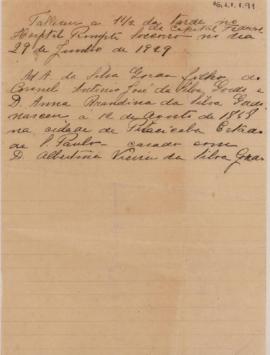 Falleceu á 1 1/2 da tarde no
Hospital Prompto Soccorro da Capital Federal no dia
29 de Junho de 1929
M. A. da Silva Gordo filho do
Coronel Antonio José da Silva Gordo e
D. Anna Brandina da Silva Gordo
nasceu a 12 de Agosto de 18
na cidade de Piracicaba Estado
de S. Paulo - casado com
D. Albertina Vieira da Silva Gordo